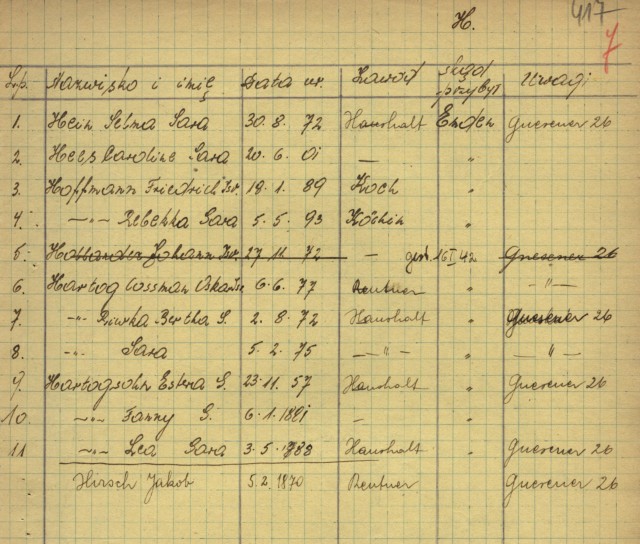 417
H.
7
L.p. Nazwisko i imię Data ur. Zawód skąd przybył Uwagi
1. Hein Selma Sara 30. 8. 72 Haushalt Emden Gnesener 26
2. Hess Caroline Sara 20. 6. 01 — "
3. Hoffmann Friedrich Isr. 19. 1. 89 Koch "
4. —"— Rebekka Sara 5. 5. 93 Köchin "
5. Hollander Johann Isr. 27 11 72 — gest. 16 I 42 Gnesener 26
6. Hartog Cossman 6. 6. 77 Rentner " —"—
7. —"— Riwka Bertha S. 2. 8. 72 Haushalt " Gnesener 26
8. —"— Sara 5. 2. 75 —"— " —"—
9. Hartogsohn Estera S. 23. 11. 57 Haushalt " Gnesener 26
10. —"— Fanny S. 6. 1. 1891 — "
11 —"— Lea Sara 3. 5. 1888 Haushalt " Gnesener 26
Hirsch Jakob 5. 2. 1870 Rentner Gnesener 26